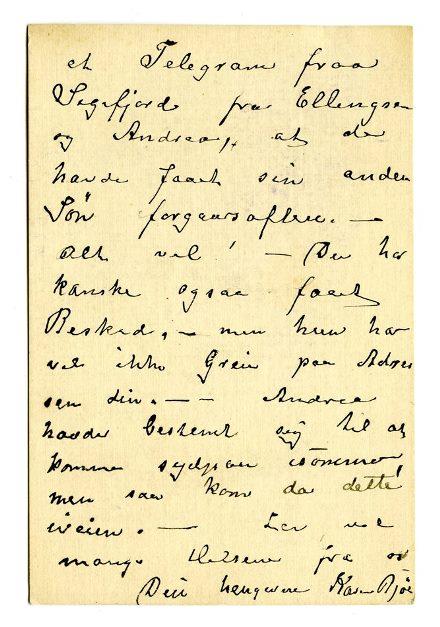 et Telegram fraa
Sigefjord fra Ellingsen
og Andrea, at de
havde faaet sin anden
Søn forgaarsaften. —
Alt vel! — Du har
kanske ogsaa faaet
Beskad, — men hun har
vel ikke Greie paa Adres
sen din. — — Andrea
havde bestemt sig til at
komme sydpaa isommer
men saa kom da dette
iveien. — Lev vel
mange Hilsene fra os
Din hengivne Kaia